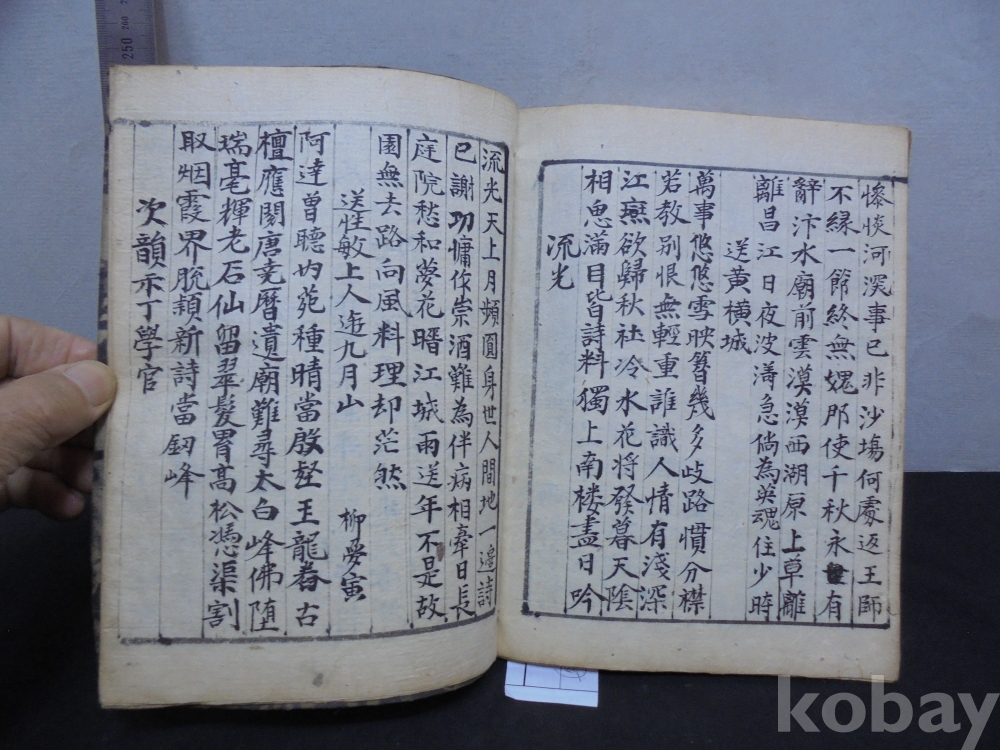 慘惔河溟事已非沙塲何處返王師
不縁一節終無媿即使千秋永有
辭汴水廟前雲漠漠西湖原上草離
離昌江日夜波濤急倘為英魂住少時
送黄横城
萬事悠悠雪映簪幾多歧路慣分襟
若教别恨無輕重誰識人情有淺深
江燕欲歸秋社冷水花将發暮天陰
相思滿目皆詩料獨上南楼盡日吟
流光
流光天上月頻圓身世人間地一邊詩
已謝功慵作崇酒難為伴病相牽日長
庭院愁和夢花暗江城雨送年不是故
園無去路向風料理却茫然
送性敏上人遊九月山
柳夢寅
阿達曽聴内苑種晴當殷王龍眷古
檀應閲唐堯曆遺廟難尋太白峰佛堕
瑞毫輝老石仙留翠髮冐高松憑渠割
取烟霞界脱穎新詩當釼峰
次韻示丁學官
250
260
kobay